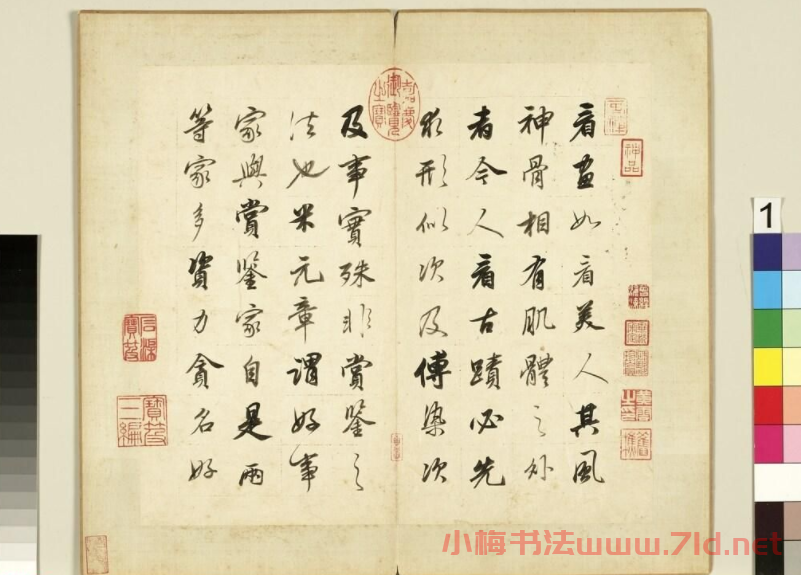 看畫如看美人其風
神骨相有肌體之外
者今人看古蹟必先
求形似次及傅染次
及事實殊非賞鑒之
法也米元章謂好事
家與賞鑒家自是兩
等家多資力貪名好
神品
嘉慶御覽之寶
石渠寶笈
寶笈三編
1
小梅书法www.7ld.net